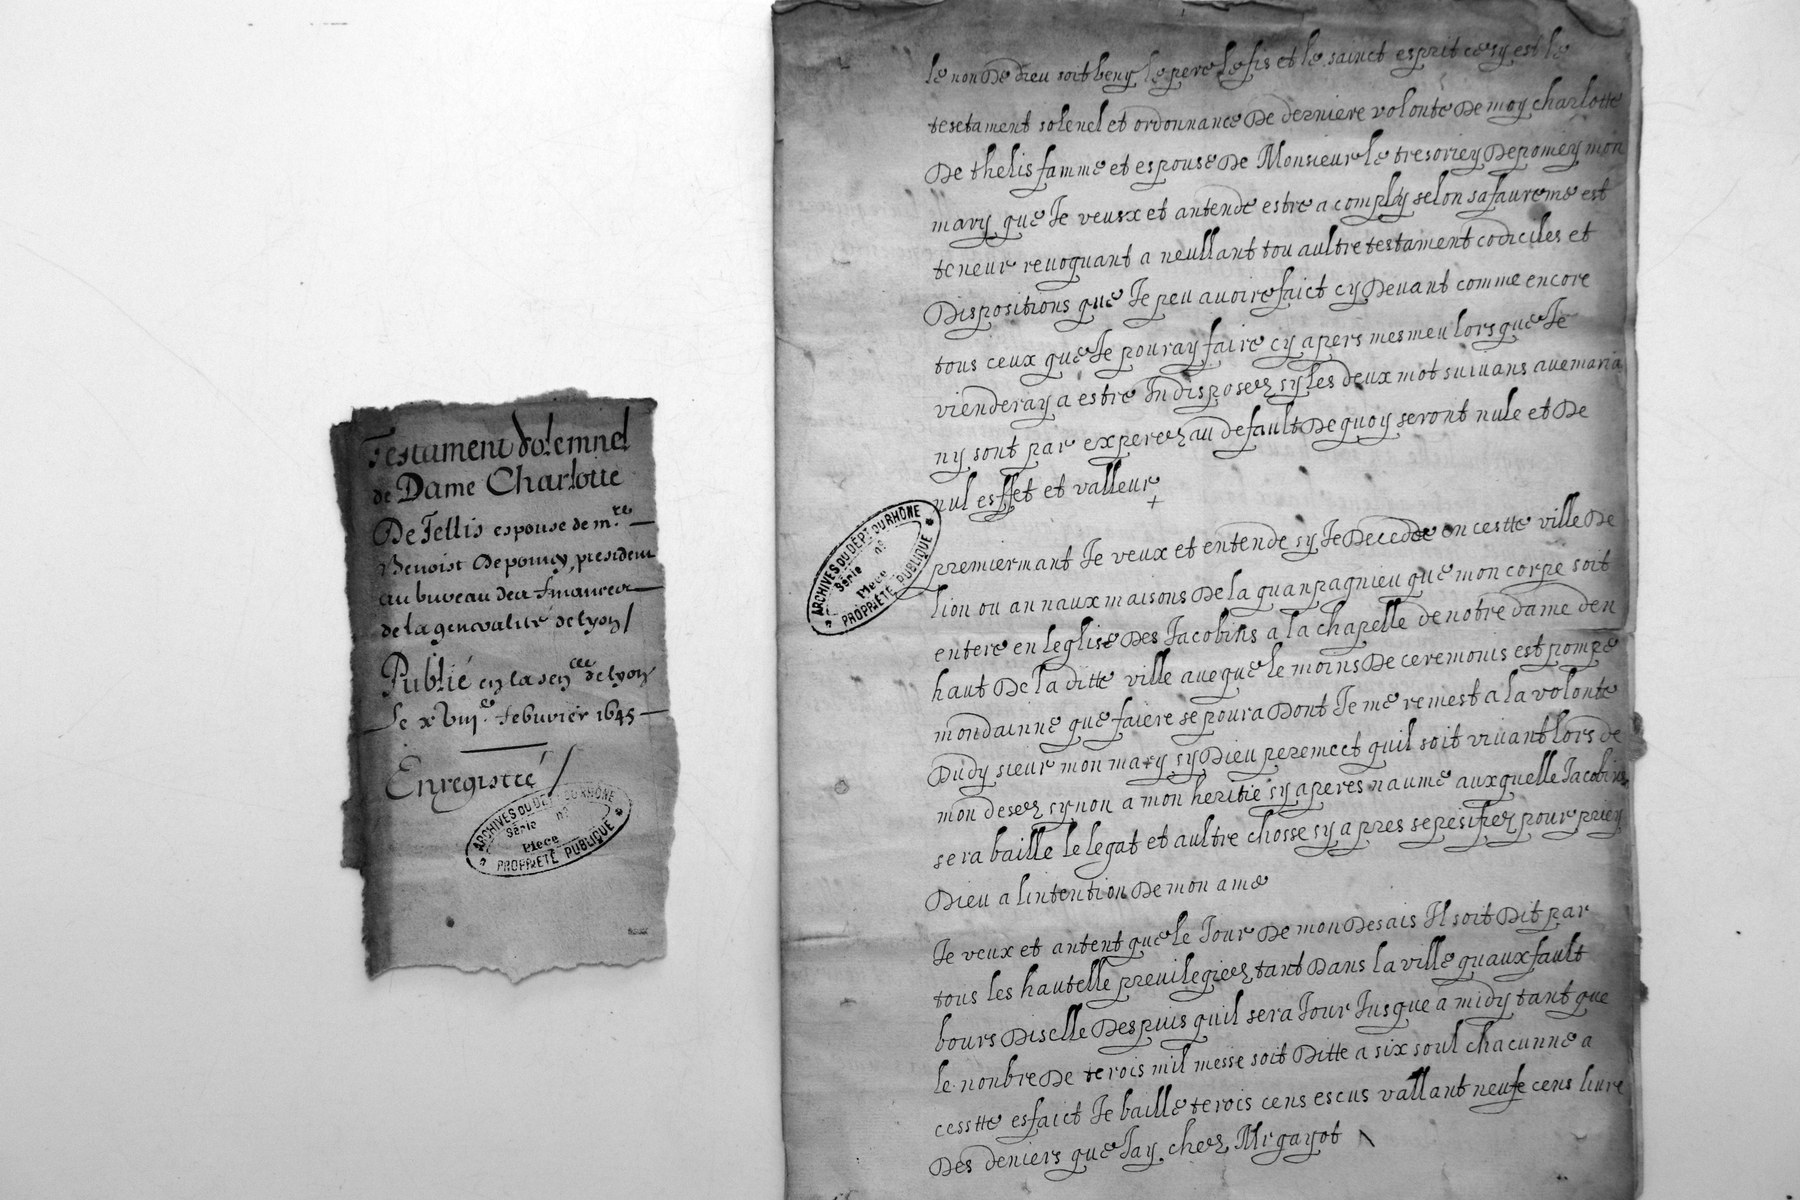 Testament solemnel
de Dame Charlotte
De Tellis espouse de m.re
Benoist Depomey, president
au bureau des finances
de la generalité de lyon /
Publié en la sen.cee de lyon
Le xviii.e febvrier 1645
Enregistré /
ARCHIVES DU DÉPT DU RHÔNE
Série nº
Pièce
PROPRIÉTÉ PUBLIQUE
le non De dieu soit beny le pere le fis et le sainct esprit cesy est le
testament solenel et ordonnance De derniere volonte De moy charlotte
De thelis famme et espouse De Monsieur le tresoriey Depomey mon
mary que Je veusx et antende estre a comply selon sa faureme est
teneur revoquant a neullant tou aultre testament codiciles et
Dispositions que Je peu avoire faict cy Devant comme encore
tous ceux que Je pouray faire cy apers mesmeu lors que Je
vienderay a estre Indisposeez sy les deux mot suivans ave maria
ny sont par experez au default De quoy seront nule et De
nul esffet et valleur
ARCHIVES DU DÉPT DU RHÔNE
Série nº
Pièce
PROPRIÉTÉ PUBLIQUE
premiermant Je veux et entende sy Je Decedde en cestte ville De
lion ou an naux maisons De la guanpagnieu que mon corpe soit
entere en leglise Des Jacobins a la chapelle de notre dame den
haut De la ditte ville aveque le moins De ceremonis est pompe
mondainne que faiere se poura Dont Je me remest a la volonte
Dudy sieur mon mary sy Dieu peremect quil soit vivant lors de
mon desez sy non a mon heritie sy aperes naume aux quelle Jacobins
sera baille le legat et aultre chosse sy a pres sepesifiez pour priey
Dieu a lintention De mon ame
Je veux et antent que le Jour De mon Desais Il soit Dit par
tous les hautelle previlegieez tant Dans la ville quaux fault
bours Diselle Despuis quil sera Jour Jusque a midy tant que
le nonbre De terois mil messe soit Ditte a six soul chacunne a
cesstte esfaict Je baille terois cens escus vallant neufe cens livre
Des deniers que Jay chez Mr gayot